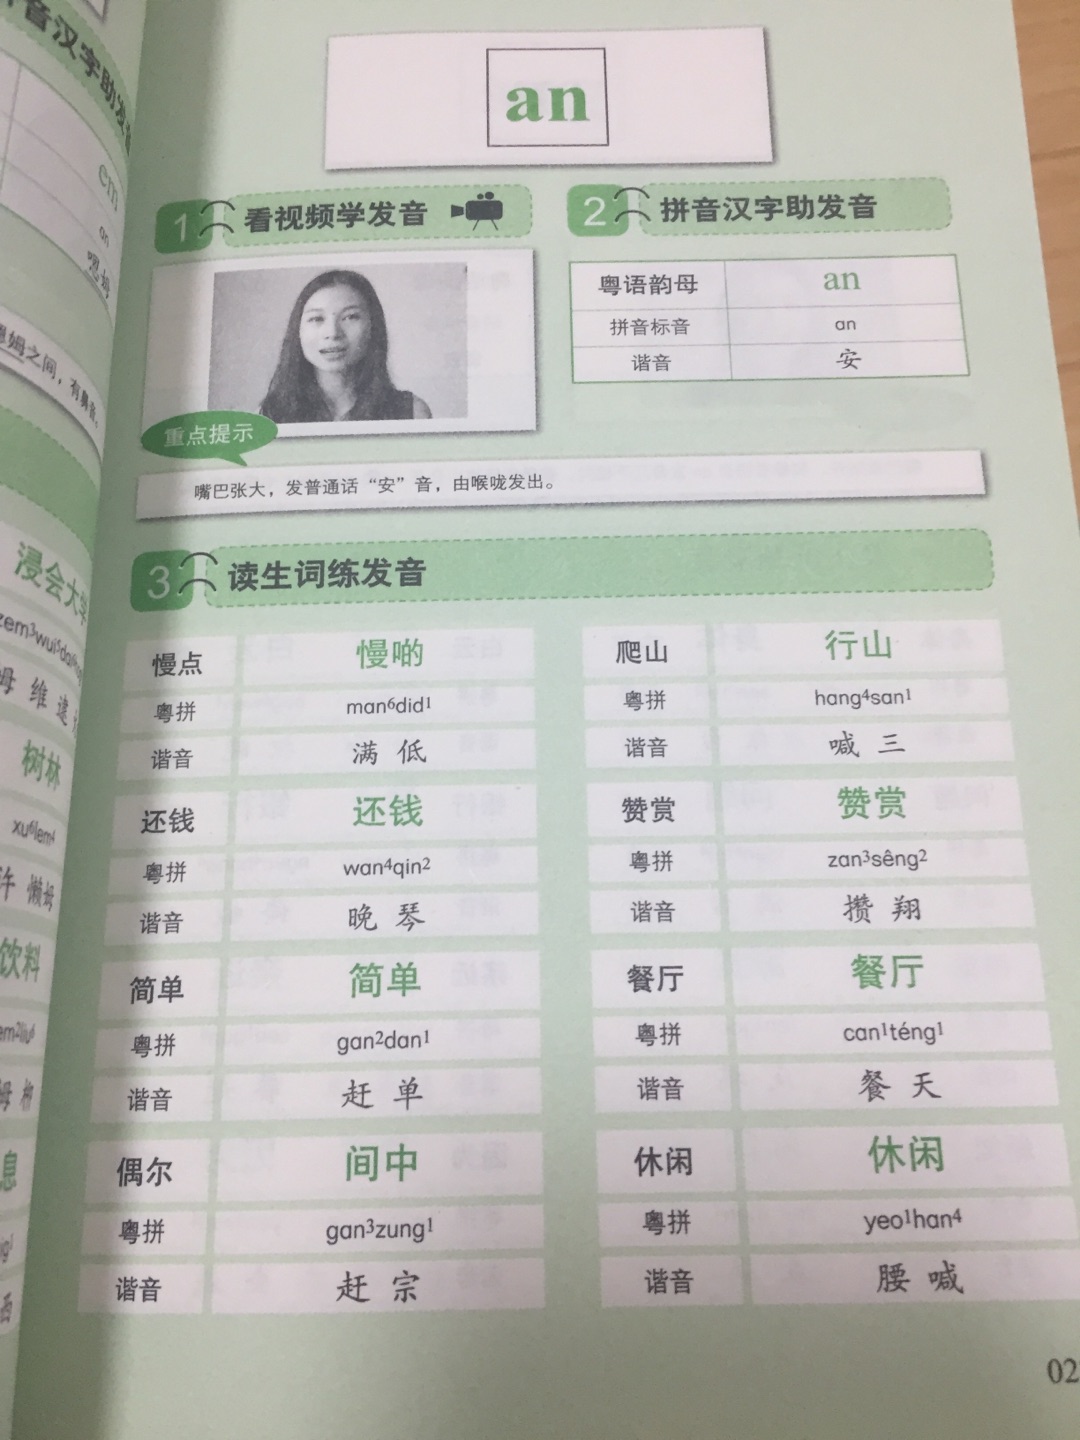 音汉字助发音
em
an
嗯姆
恩姆之间，有鼻音。
浸会大学
树林
xu⁶lem⁴
许 懒姆
饮料
an
1 看视频学发音
2 拼音汉字助发音
粤语韵母 an
拼音标音 an
谐音 安
重点提示
嘴巴张大，发普通话“安”音，由喉咙发出。
3 读生词练发音
慢点 慢啲
粤拼 man⁶did¹
谐音 满 低
爬山 行山
粤拼 hang⁴san¹
谐音 喊 三
还钱 还钱
粤拼 wan⁴qin²
谐音 晚 琴
赞赏 赞赏
粤拼 zan³sêng²
谐音 攒 翔
简单 简单
粤拼 gan²dan¹
谐音 赶 单
餐厅 餐厅
粤拼 can¹téng¹
谐音 餐 天
偶尔 间中
粤拼 gan³zung¹
谐音 赶 宗
休闲 休闲
粤拼 yeo¹han⁴
谐音 腰 喊
02